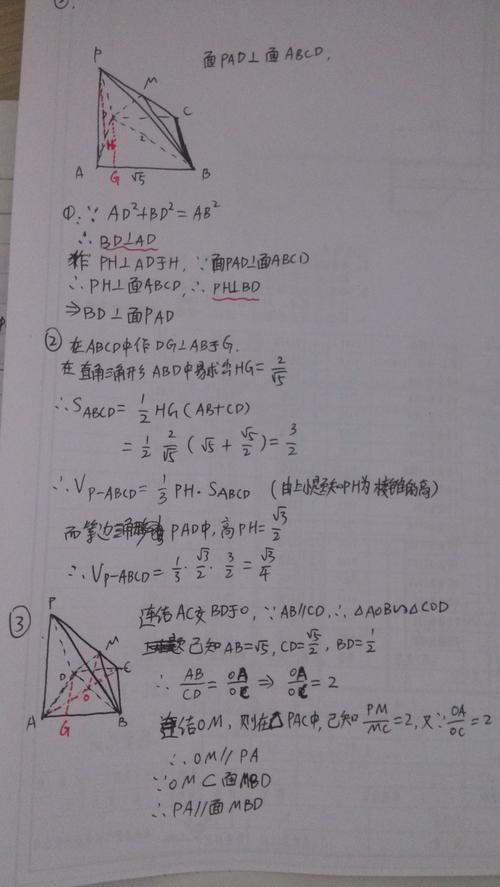 面PAD⊥面ABCD,
P
M
D
C
H
2
A
G
√5
B
①∵ AD²+BD²=AB²
∴ BD⊥AD
作 PH⊥AD于H, ∵面PAD⊥面ABCD
∴PH⊥面ABCD, ∴PH⊥BD
⇒BD⊥面PAD
② 在ABCD中作 DG⊥AB于G.
在直角三角形 ABD中易求出HG=2/√5
∴S_ABCD=1/2 HG(AB+CD)
=1/2 2/√5 (√5+√5/2)=3/2
∴V_P-ABCD=1/3 PH·S_ABCD (由上小题知PH为棱锥的高)
而等边三角形 PAD中,高PH=√3/2
∴V_P-ABCD=1/3·√3/2·3/2=√3/4
③
P
M
D
C
O
A
G
B
连结AC交BD于O, ∵AB//CD, ∴△AOB∽△COD
已知AB=√5, CD=√5/2, BD=1/2
∴AB/CD=OA/OC ⇒ OA/OC=2
连结OM, 则在△PAC中,已知PM/MC=2,又∵OA/OC=2
∴OM//PA
∵OM⊂面MBD
∴PA//面MBD